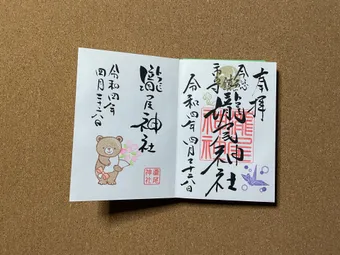 奉拝
瀧尾神社
令和四年四月二十八日
瀧尾神社
令和四年
四月二十八日
瀧尾
神社